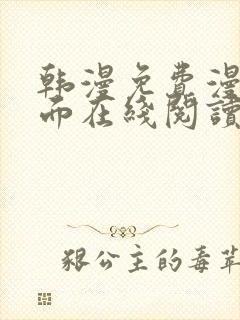 韩漫免费漫
而在线阅读
狠公主的毒苹